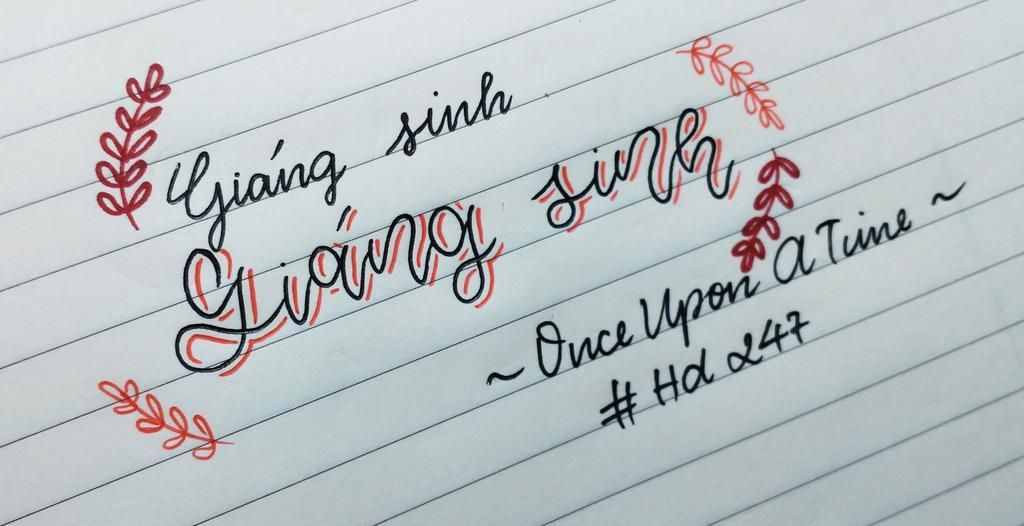 Giáng sinh
Giáng sinh
~ Once Upon A Time ~
# Hd 247